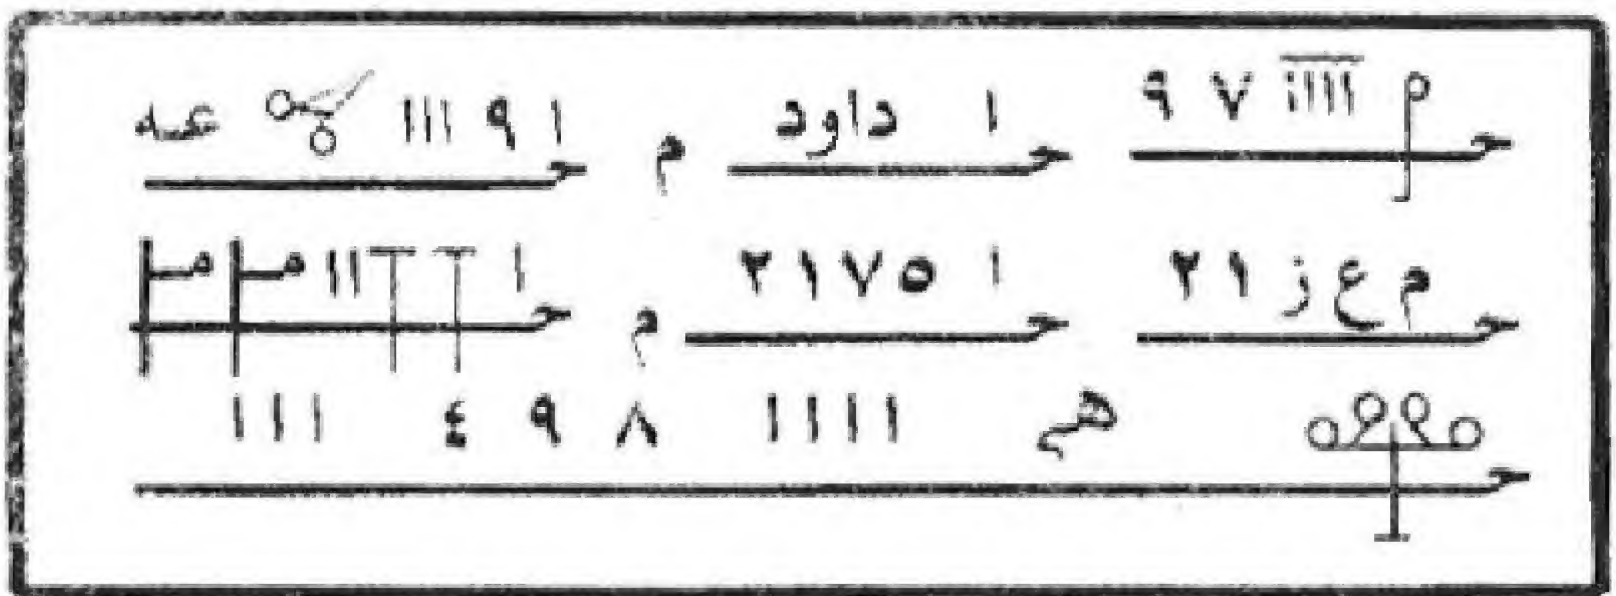 م ١١١١ ٧ ٩ ا داود م ١ ٩ ١١١ عـه
م ع ز ٢١ ا ٢١٧٥ م ا ١١ مـ مـ
هي ١١١١ ٨ ٩ ٤ ١١١